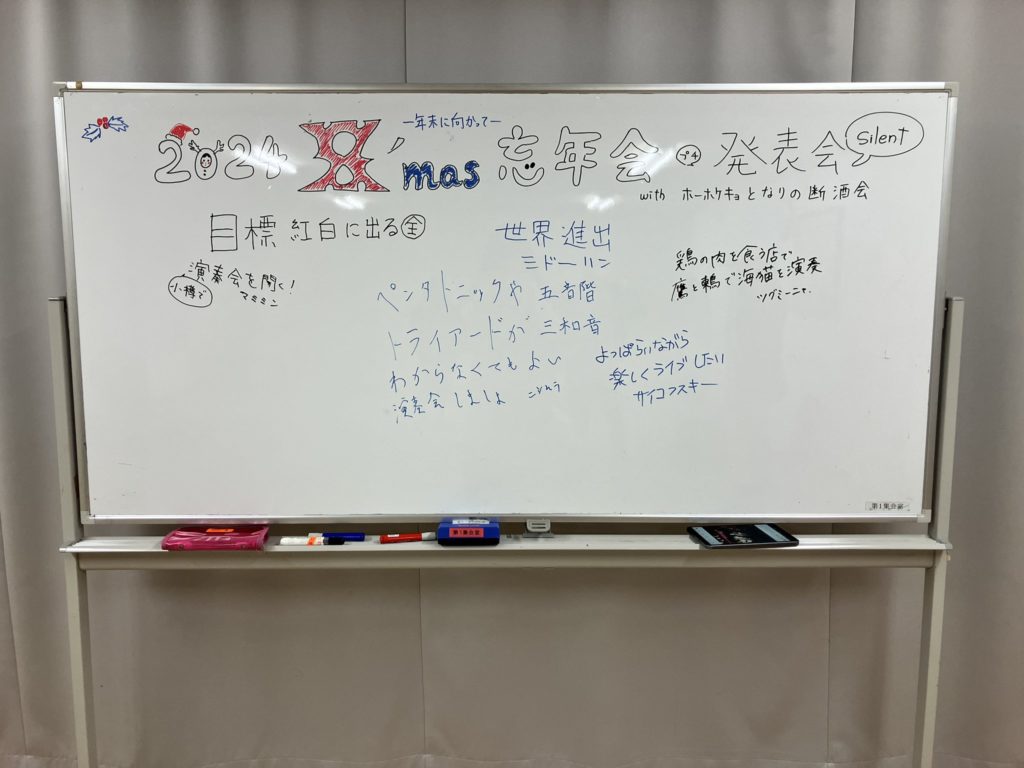 ー年末に向かってー
2024 X'mas 忘年会 プチ 発表会 silent
with ホーホケキョとなりの断酒会
目標 紅白に出る 全
演奏会を開く!
小樽で
マミミン
世界進出
ミドーリン
ペンタトニックや 五音階
トライアードが 三和音
わからなくてもよい
演奏会しましょ
鶏の肉を食う店で
鷹と鶫で海猫を演奏
ツグミーニャ.
よっぱらいながら
楽しくライブしたい
サイコフスキー
第1集会室
第1集会室